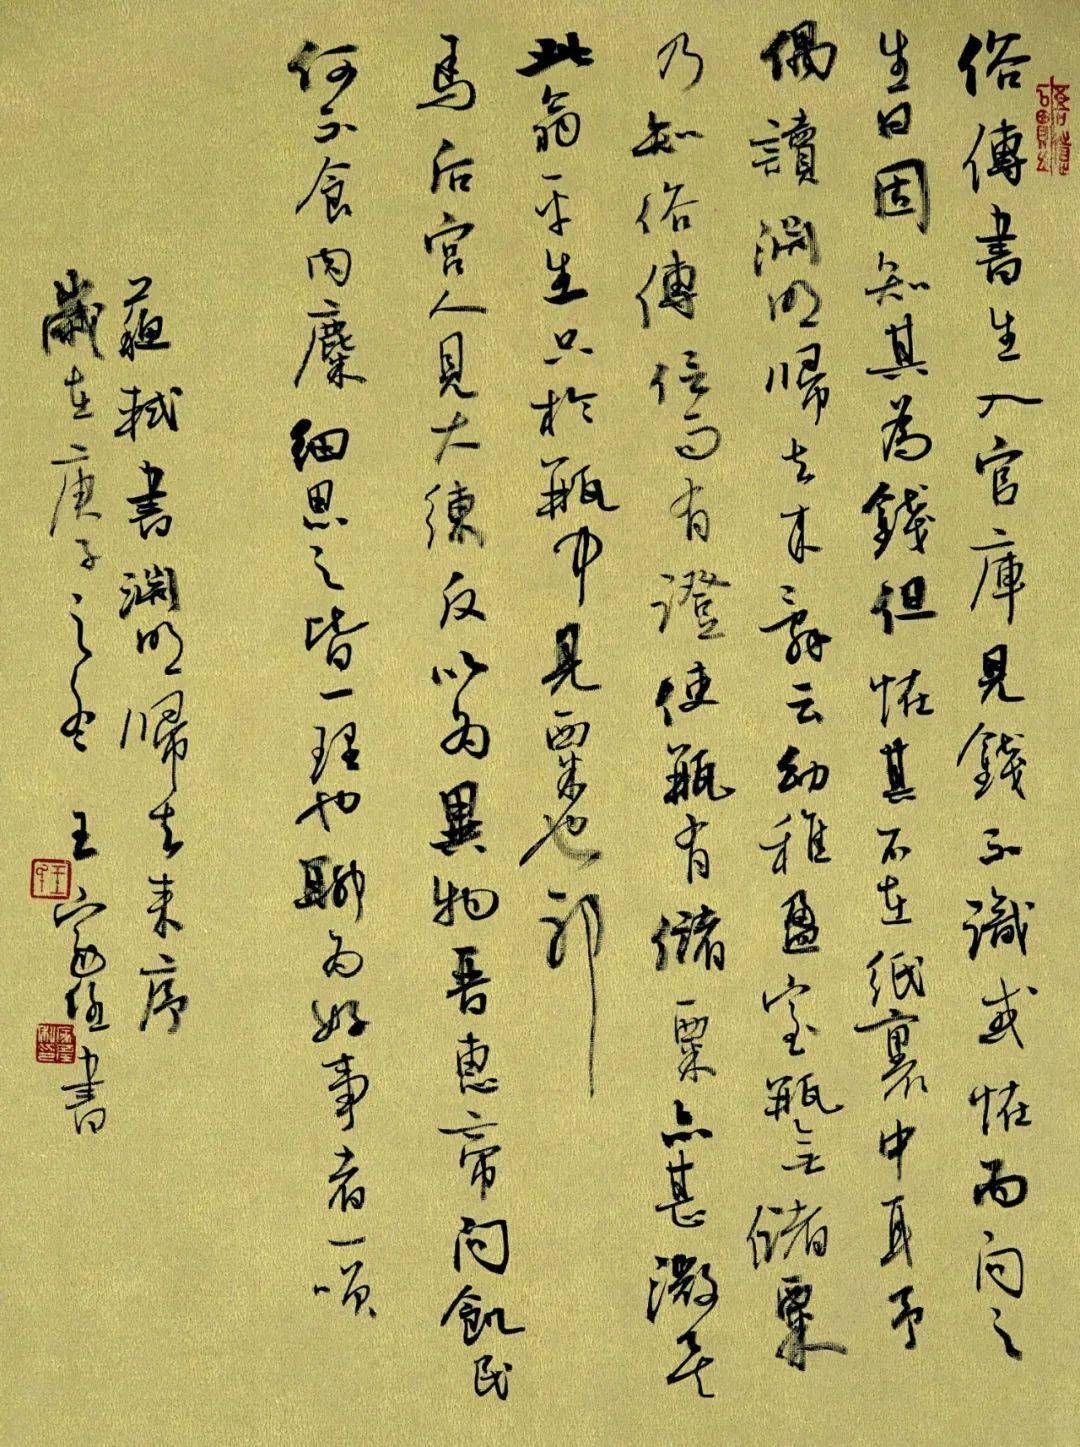 俗傳書生入官庫見錢不識或怪而問之
生曰固知其為錢但怪其不在紙裹中耳予
偶讀淵明歸去來辭云幼稚盈室瓶無儲粟
乃知俗傳信而有證使瓶有儲粟亦甚微矣
此翁平生只於瓶中見粟也耶
馬后宮人見大練反以為異物晉惠帝問飢民
何不食肉糜細思之皆一理也聊為好事者一咲
蘇軾書淵明歸去來序
歲在庚子之冬 王家書